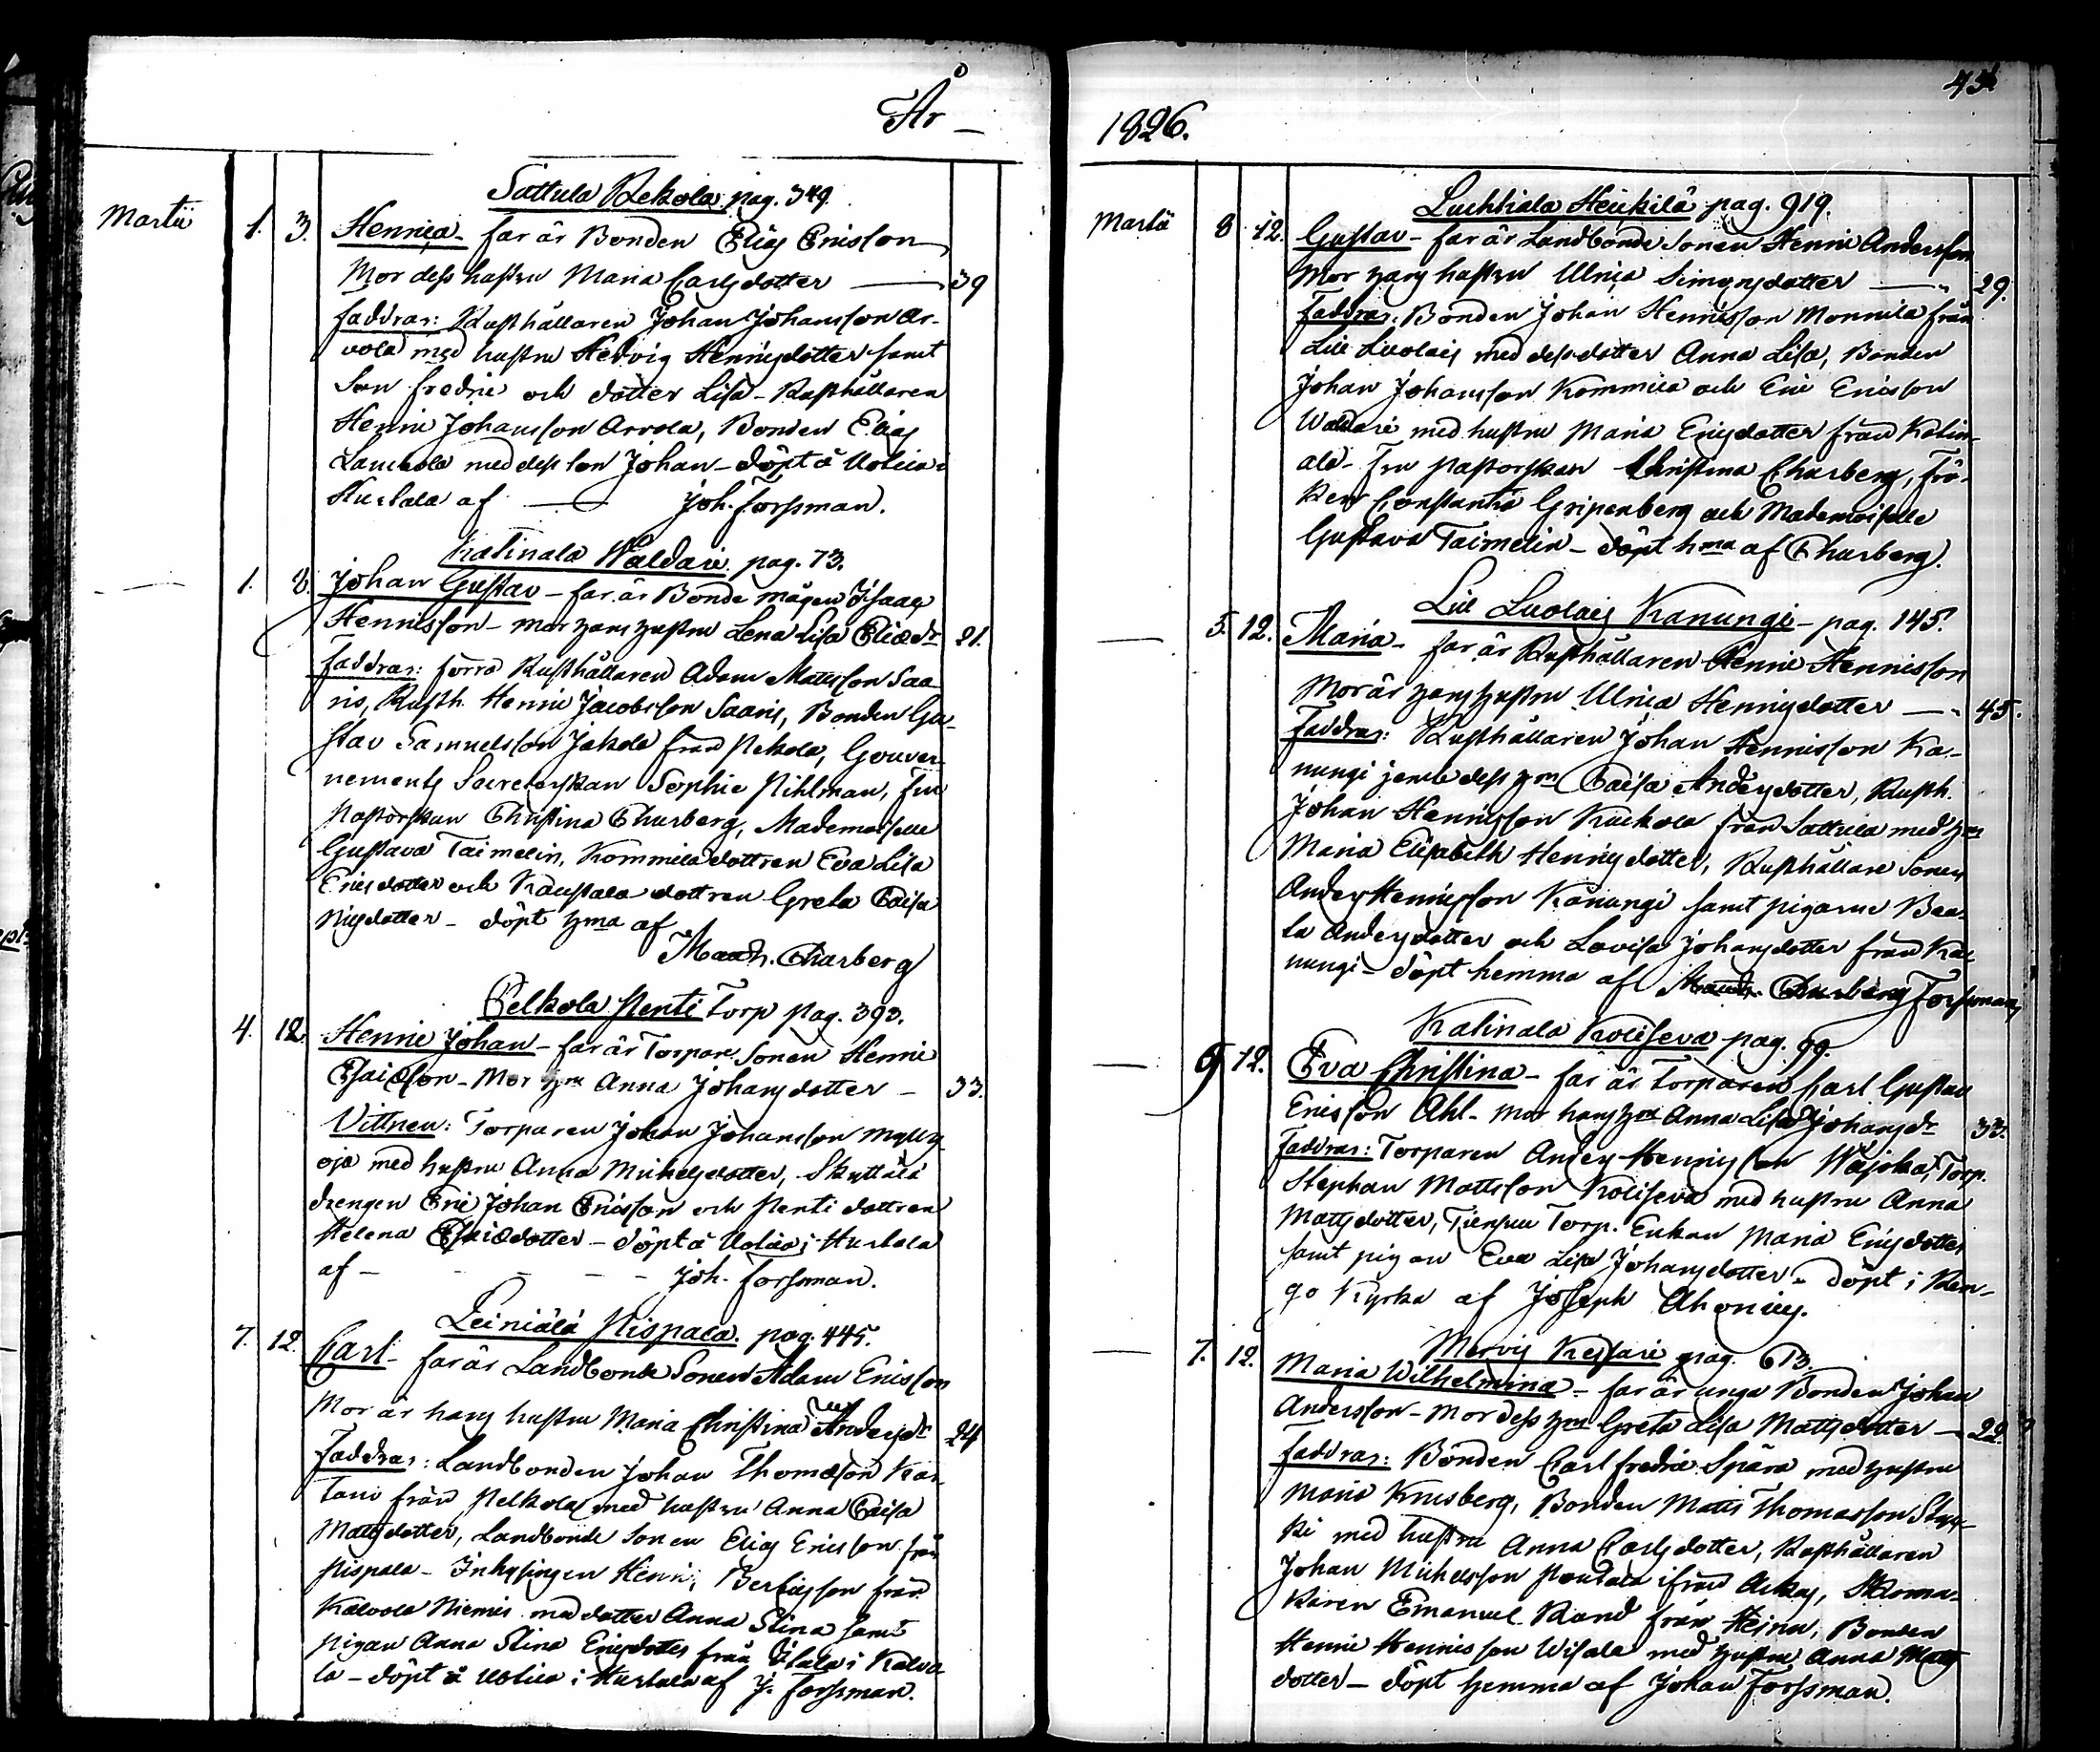 År —
Sattula Rekola pag. 349.
Martii 1. 3. Henrica - far är Bonden Elias Ericsson
Mor dess hustru Maria Carlsdotter — 39
Faddrar: Rusthållaren Johan Johansson Ar-
vola med hustru Hedvig Henricsdotter samt
Son Fredric och dotter Lisa - Rusthållaren
Henric Johansson Arvola, Bonden Elias
med dess son Johan - döpt å
af — Joh. Forssman.
Katinala Waldari pag. 73.
— 1. 8. Johan Gustav - far är Bonde mågen Isaac
Henricsson - mor hans hustru Lena Lisa Eliædr 21.
Faddrar: förra Rusthållaren Adam Mattsson Saa-
ris, Rusth. Henric Jacobsson Saaris, Bonden Gu-
stav Samuelsson Jakola från Pekola, Gouver-
nements Secreterskan Sophie Pihlman, Fru
Pastorskan Christina Churberg, Mademoiselle
Gustava Taimelin, Kommila dottren Eva Lisa
Ericsdotter och dottren Greta Caisa
Nilsdotter - döpt hma af
Churberg
Pelkola Penti Torp pag. 393.
4. 12. Henric Johan - far är Torpare Sonen Henric
Esaiæson - Mor hm Anna Johansdotter — 33.
Vittnen: Torparen Johan Johansson Mylly-
oja med hustru Anna Michelsdotter, Skyttälä
drengen Eric Johan Ericsson och Penti dottren
Helena Esaiædotter - döpt å
af — — — — Joh. Forssman.
Leiniälä Pispala. pag. 445.
7. 12. Carl - far är Landbonde Sonen Adam Ericsson
Mor är hans hustru Maria Christina Andersdr 24
Faddrar: Landbonden Johan Thomæson
från Pelkola med hustru Anna Caisa
Mattsdotter, Landbonde sonen Elias Ericsson från
Pispala - Inhysingen Henric från
Kalvola Niemis med dotter Anna Stina samt
pigan Anna Stina Ericsdotter från i Kalvo-
la - döpt å af J. Forssman.
43
1826.
Luhtiala Heikkilä pag. 919.
Martii 8 12. Gustav - far är Landbonde Sonen Henric Andersson
Mor hans hustru Ulrica Simonsdotter — 29.
Faddrar: Bonden Johan Henricsson Monnila från
Lill Luolais med dess dotter Anna Lisa, Bonden
Johan Johansson Kommila och Eric Ericsson
Waldari med hustru Maria Ericsdotter från Katin-
ala - Fru Pastorskan Christina Churberg, Frö-
ken Constantia Gripenberg och Mademoiselle
Gustava Taimelin - döpt hma af Churberg.
Lill Luolais Kanungi - pag. 145.
— 5. 12. Maria - far är Rusthållaren Henric Henricsson
Mor är hans hustru Ulrica Henricsdotter — 45.
Faddrar: Rusthållaren Johan Henricsson Ka-
nungi jemte dess hm Caisa Andersdotter, Rusth.
Johan Henricsson från Sattula med hm
Maria Elisabeth Henricsdotter, Rusthållare Sonen
Anders Henricsson Kanungi samt pigorne Bea-
ta Andersdotter och Lovisa Johansdotter från Ka-
nungi - döpt hemma af Churberg Forssman
Katinala Koliseva pag. 99.
— 9 12. Eva Christina - far är Torparen Carl Gustav
Ericsson Ahl - mor hans hm Anna Lisa Johansdr 33.
Faddrar: Torparen Anders Henricsson Torp.
Stephan Mattsson Koliseva med hustru Anna
Mattsdotter, Torp. Enkan Maria Ericsdotter
samt pigan Eva Lisa Johansdotter - döpt i Ren-
go Kyrka af Joseph Ahonius.
Mervis pag. 613.
— 7. 12. Maria Wilhelmina - far är unga Bonden Johan
Andersson - mor dess hm Greta Lisa Mattsdotter — 22.
Faddrar: Bonden Carl Fredric Spära med hustru
Maria Krusberg, Bonden Matts Thomasson
med hustru Anna Carlsdotter, Rusthållaren
Johan Michelsson ifrån Skoma-
karen Emanuel Rand från Heinu, Bonden
Henric Henricsson Wisala med hustru Anna Matts-
dotter - döpt hemma af Johan Forssman.